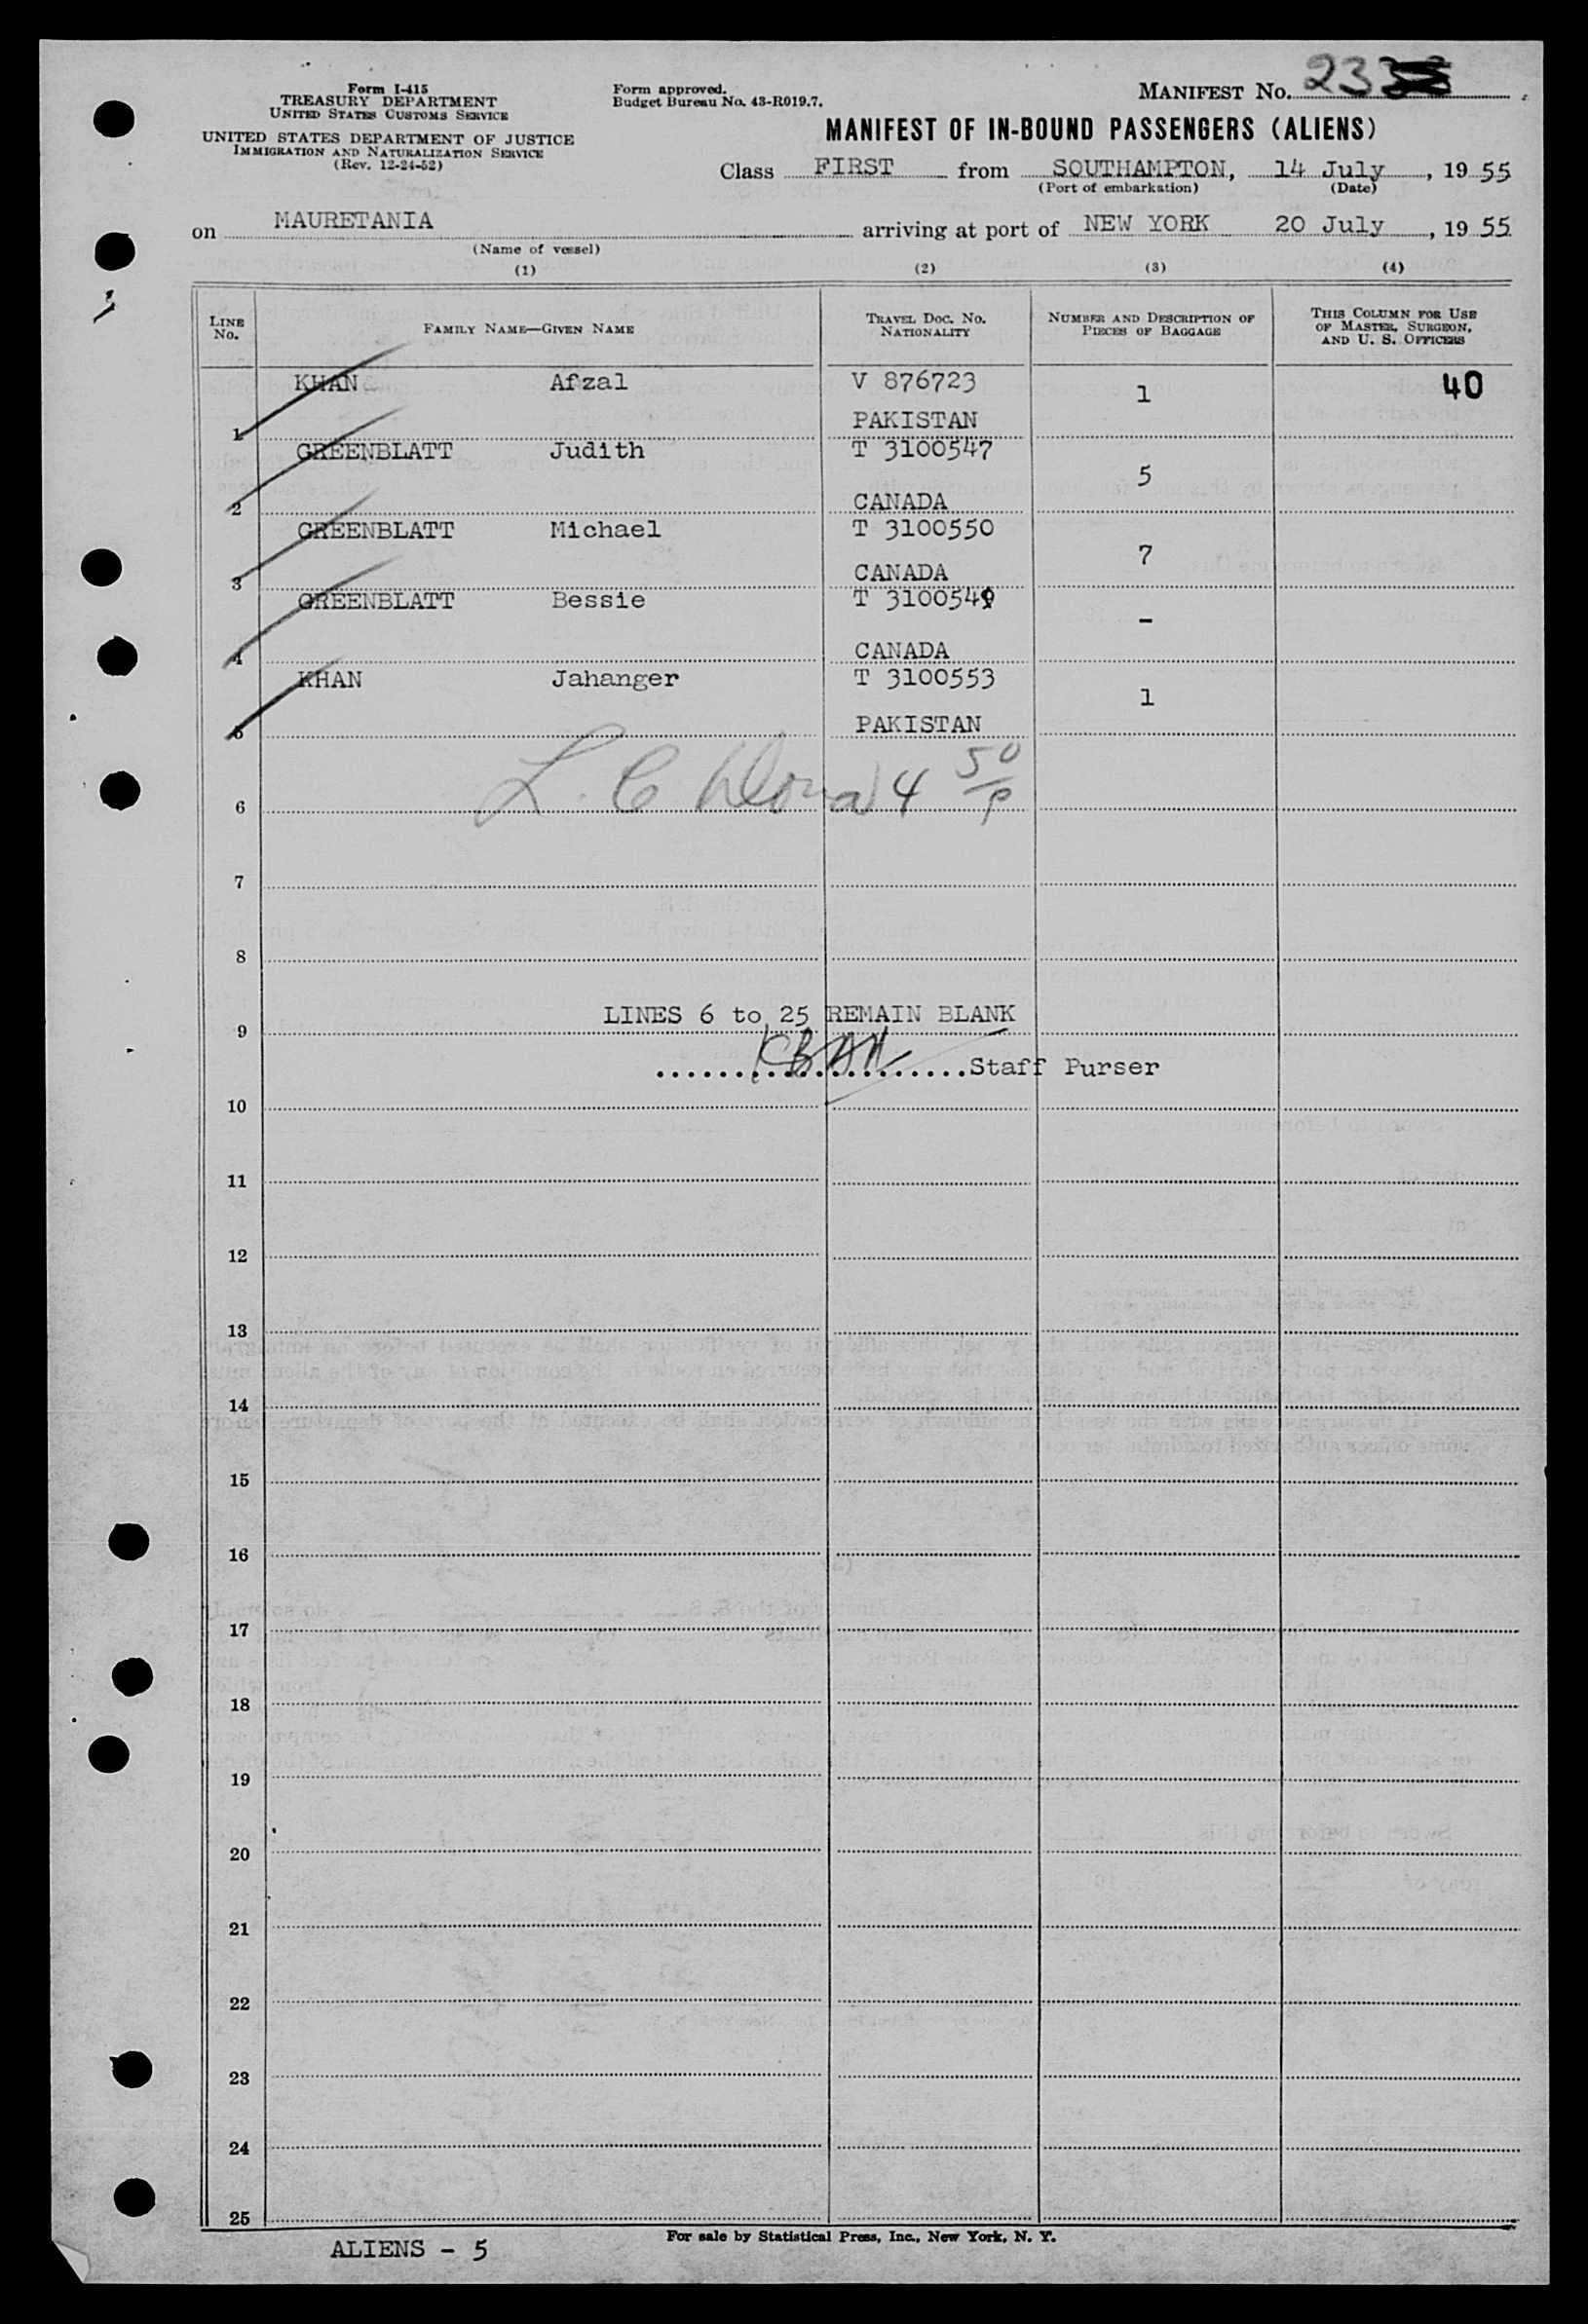 Form I-415
TREASURY DEPARTMENT
UNITED STATES CUSTOMS SERVICE
UNITED STATES DEPARTMENT OF JUSTICE
IMMIGRATION AND NATURALIZATION SERVICE
(Rev. 12-24-52)
Form approved.
Budget Bureau No. 43-R019.7.
MANIFEST No. 23
MANIFEST OF IN-BOUND PASSENGERS (ALIENS)
Class FIRST from SOUTHAMPTON, 14 July, 19 55
(Port of embarkation) (Date)
on MAURETANIA arriving at port of NEW YORK 20 July, 19 55
(Name of vessel)
(1) (2) (3) (4)
LINE No. FAMILY NAME—GIVEN NAME TRAVEL DOC. NO. NATIONALITY NUMBER AND DESCRIPTION OF PIECES OF BAGGAGE THIS COLUMN FOR USE OF MASTER, SURGEON, AND U. S. OFFICERS
KHAN Afzal V 876723 1 40
1 PAKISTAN
GREENBLATT Judith T 3100547 5
2 CANADA
GREENBLATT Michael T 3100550 7
3 CANADA
GREENBLATT Bessie T 3100549 -
4 CANADA
KHAN Jahanger T 3100553 1
5 PAKISTAN
L. C. 4 50/P
6
7
8
LINES 6 to 25 REMAIN BLANK
9
Staff Purser
10
11
12
13
14
15
16
17
18
19
20
21
22
23
24
25
For sale by Statistical Press, Inc., New York, N. Y.
ALIENS - 5